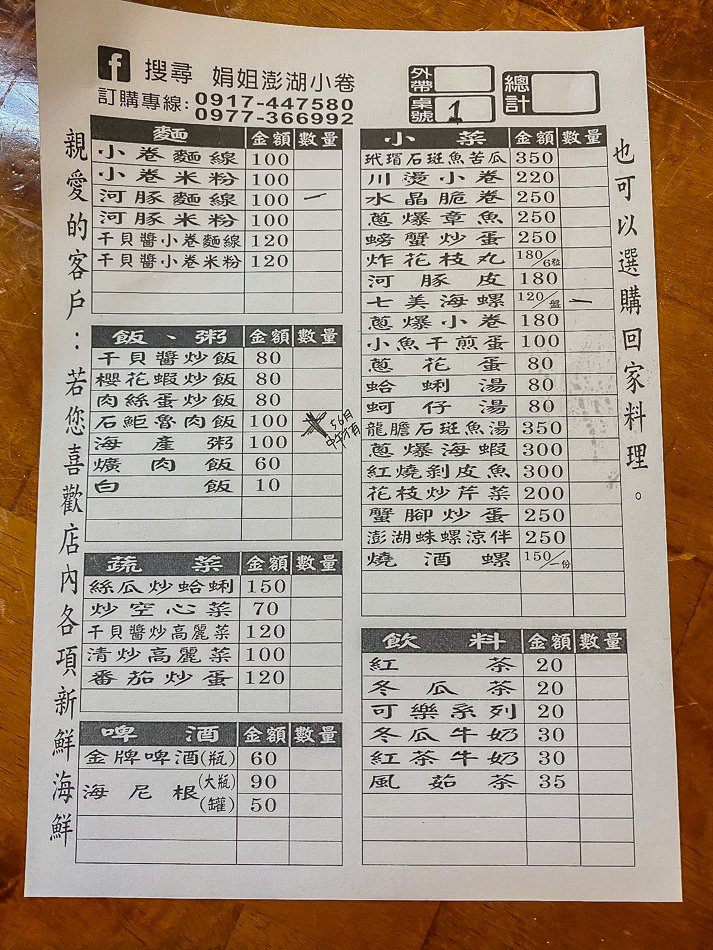 f 搜尋 娟姐澎湖小卷
訂購專線: 0917-447580
0977-366992
外帶
桌號 1
總計
親愛的客戶：若您喜歡店內各項新鮮海鮮
也可以選購回家料理。
麵 金額 數量
小卷麵線 100
小卷米粉 100
河豚麵線 100 一
河豚米粉 100
干貝醬小卷麵線 120
干貝醬小卷米粉 120
飯、粥 金額 數量
干貝醬炒飯 80
櫻花蝦炒飯 80
肉絲蛋炒飯 80
石鮔魯肉飯 100
海產粥 100
爌肉飯 60
白飯 10
蔬菜 金額 數量
絲瓜炒蛤蜊 150
炒空心菜 70
干貝醬炒高麗菜 120
清炒高麗菜 100
番茄炒蛋 120
啤酒 金額 數量
金牌啤酒(瓶) 60
海尼根 (大瓶) 90
(罐) 50
小菜 金額 數量
玳瑁石斑魚苦瓜 350
川燙小卷 220
水晶脆卷 250
蔥爆章魚 250
螃蟹炒蛋 250
炸花枝丸 180/6粒
河豚皮 180
七美海螺 120/盤 一
蔥爆小卷 180
小魚干煎蛋 100
蔥花蛋 80
蛤蜊湯 80
蚵仔湯 80
龍膽石斑魚湯 350
蔥爆海蝦 300
紅燒剝皮魚 300
花枝炒芹菜 200
蟹腳炒蛋 250
澎湖蛛螺涼伴 250
燒酒螺 150/一份
飲料 金額 數量
紅茶 20
冬瓜茶 20
可樂系列 20
冬瓜牛奶 30
紅茶牛奶 30
風茹茶 35